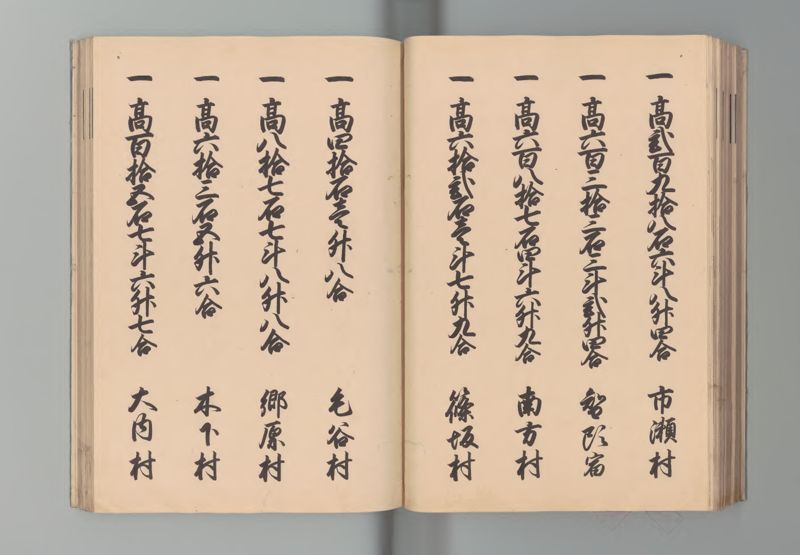 一 高弐百九拾八石六斗八升四合 市瀬村
一 高六百三拾三石三斗弐升四合 智頭宿
一 高六百八拾七石四斗六升九合 南方村
一 高六拾弐石壱斗七升九合 篠坂村
一 高四拾石壱升八合 毛谷村
一 高八拾七石七斗八升八合 郷原村
一 高六拾三石五升六合 木下村
一 高百拾五石七斗六升七合 大内村